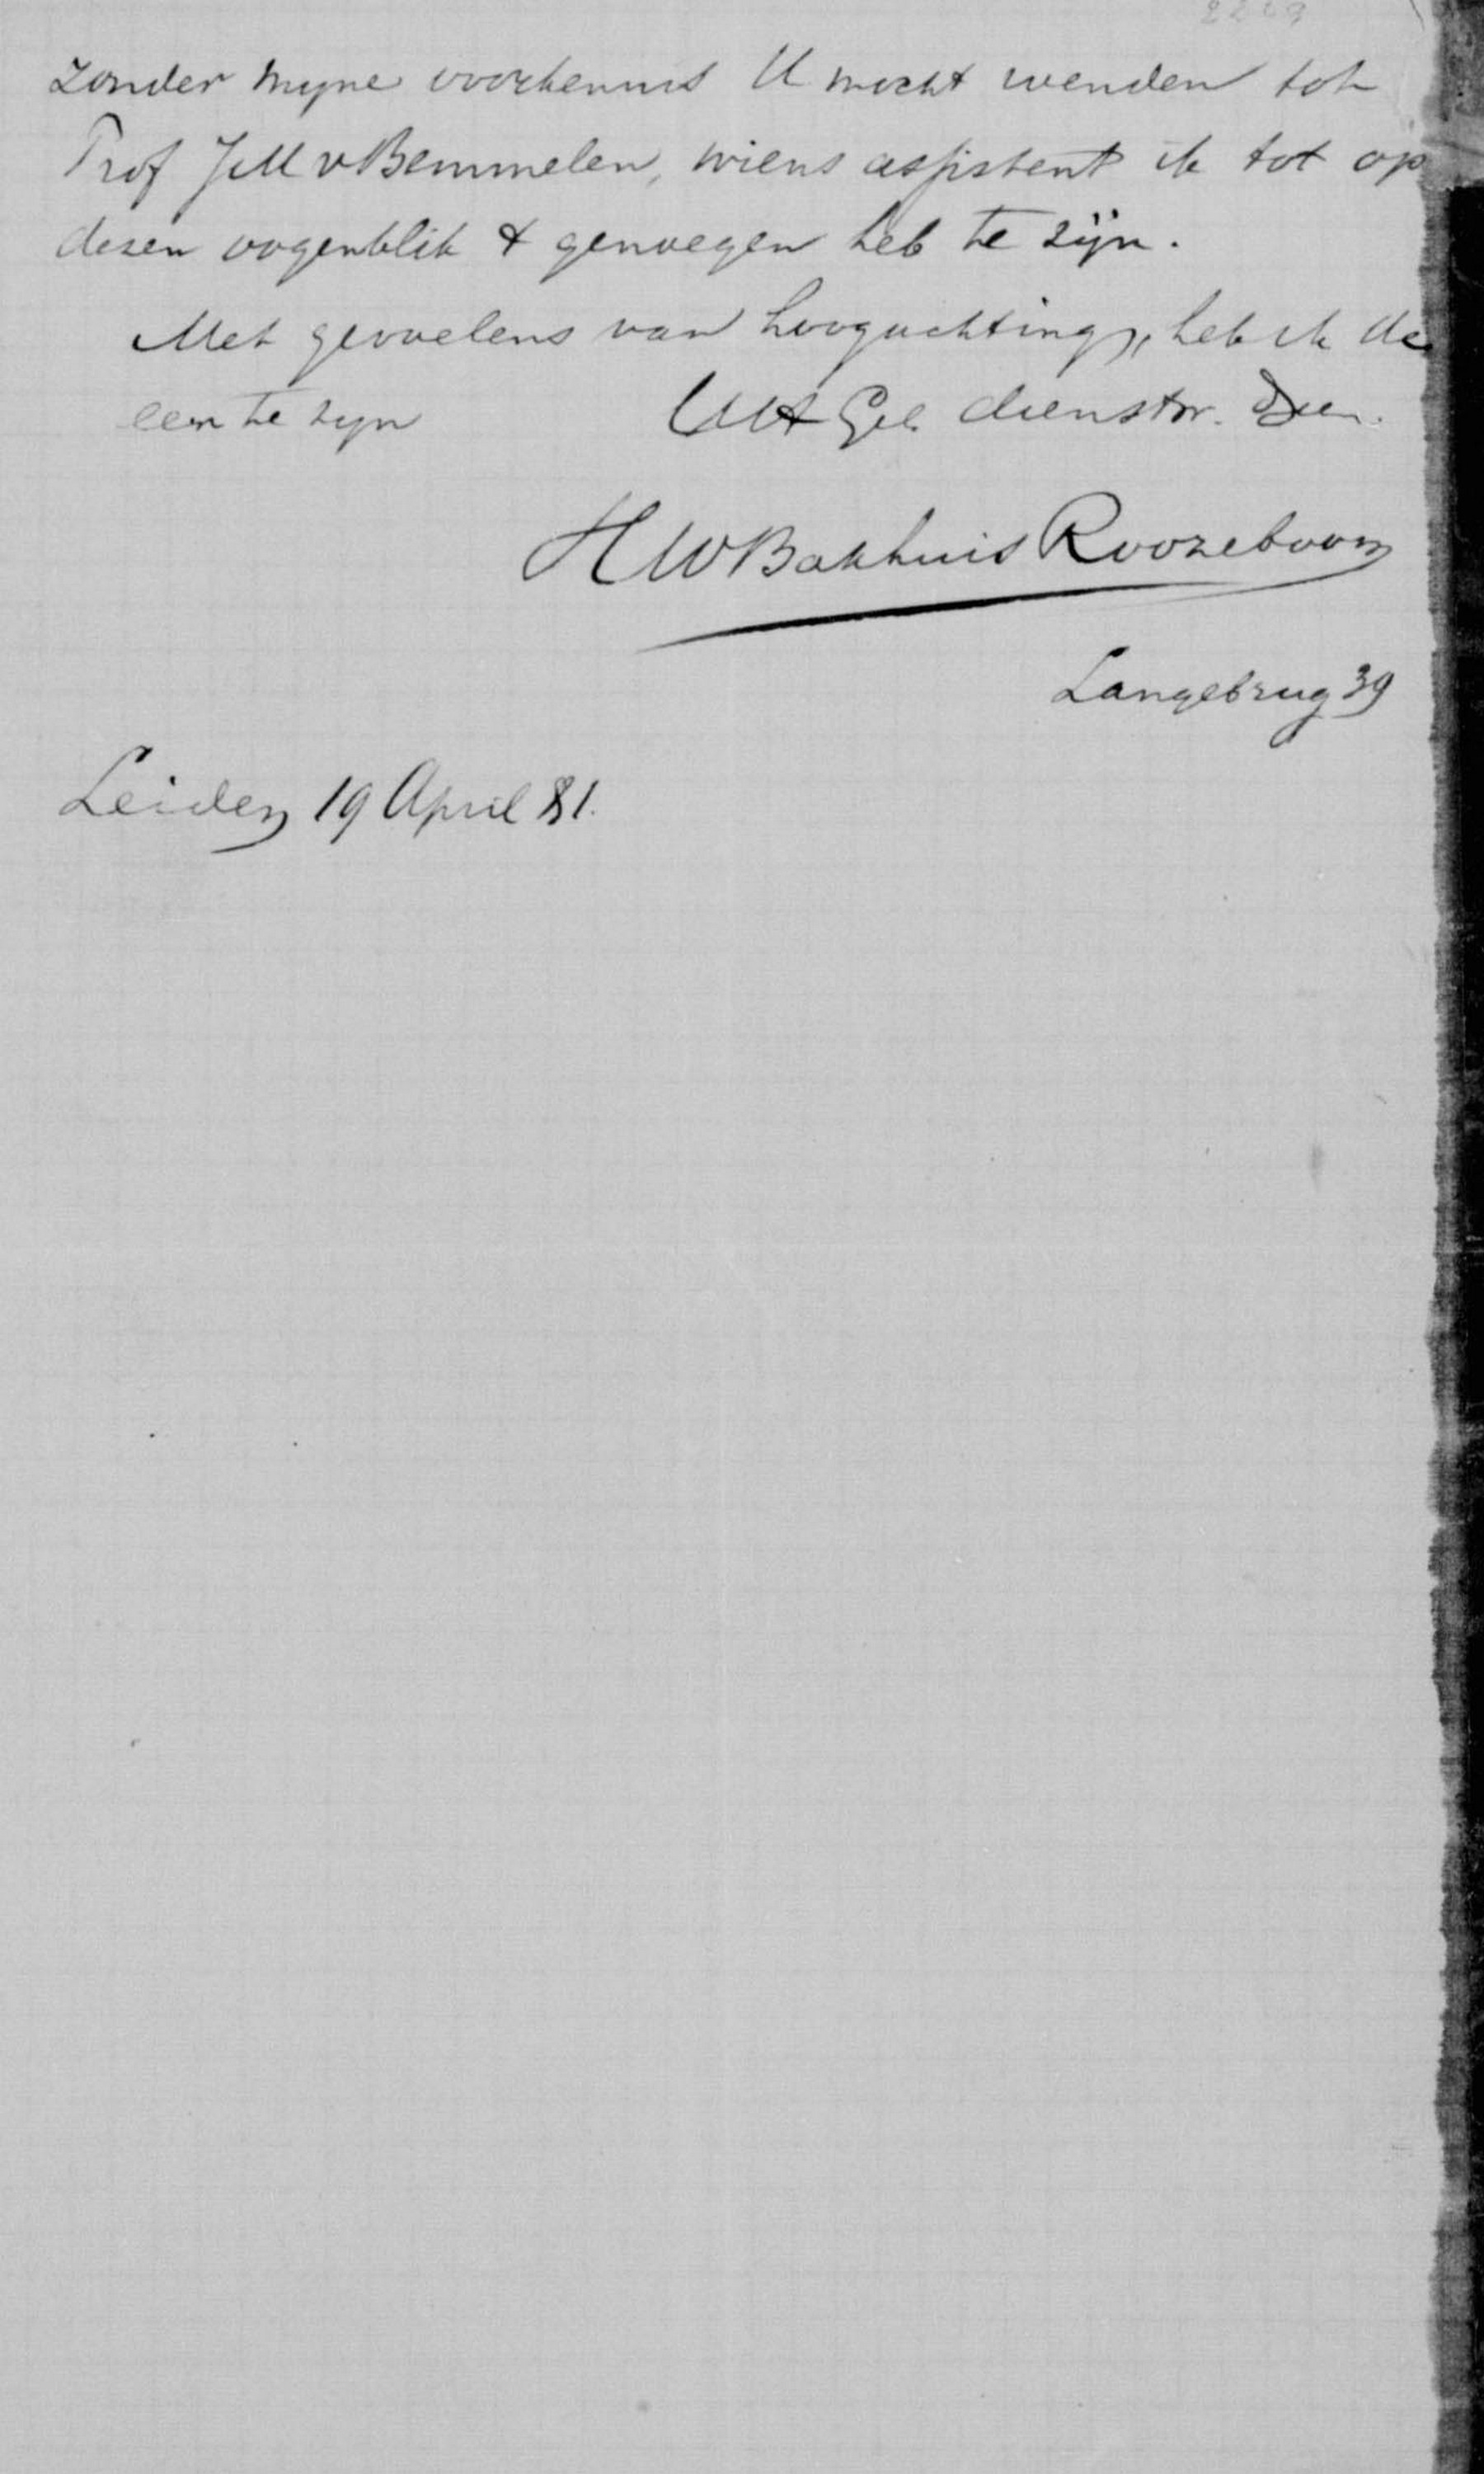 zonder myne voorkennis U mocht wenden tot
Prof J M v Bemmelen, wiens assistent ik tot op
dezen oogenblik 't genoegen heb te zijn.
Met gevoelens van hoogachting, heb ik de
eer te zyn UEd Geb dienstw. Dien.
HW Bakhuis Roozeboom
Langebrug 39
Leiden 19 April 81.